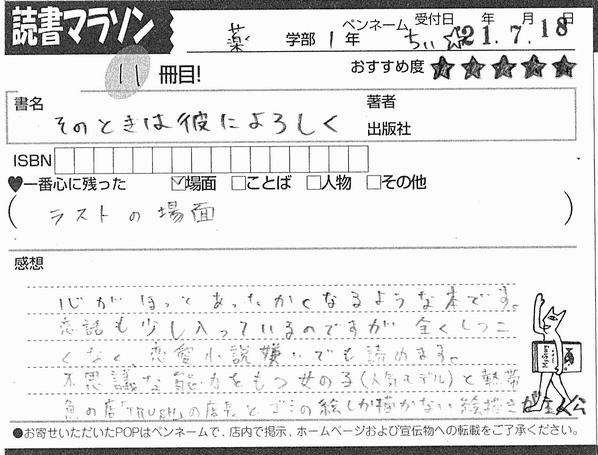 読書マラソン
薬 学部 1 年 ペンネーム ちぃ☆ 受付日 21年7月18日
11 冊目! おすすめ度 ★★★★★
書名 そのときは彼によろしく
著者
出版社
ISBN
♥一番心に残った ☑場面 □ことば □人物 □その他
(ラストの場面)
感想
心がほっとあったかくなるような本です。
恋話も少し入っているのですが全くしつこ
くなく恋愛小説嫌いでも読めます。
不思議な能力をもつ女の子(人気モデル)と熱帯
魚の店「TRUSH」の店長とゴミの絵しか描かない絵描きが主人公
●お寄せいただいたPOPはペンネームで、店内で掲示、ホームページおよび宣伝物への転載をご了承ください。